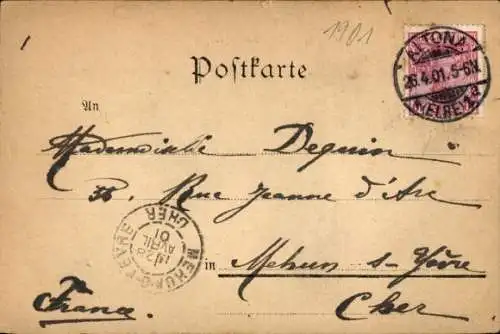 1901
ALTONA
26.4.01.5-6N.
Postkarte
An
Mademoiselle Dequin
Rue Jeanne d'Arc
in Mehun s-Yèvre
Cher
France.
MEHUN-S-YEVRE
28
AVRIL
01
CHER